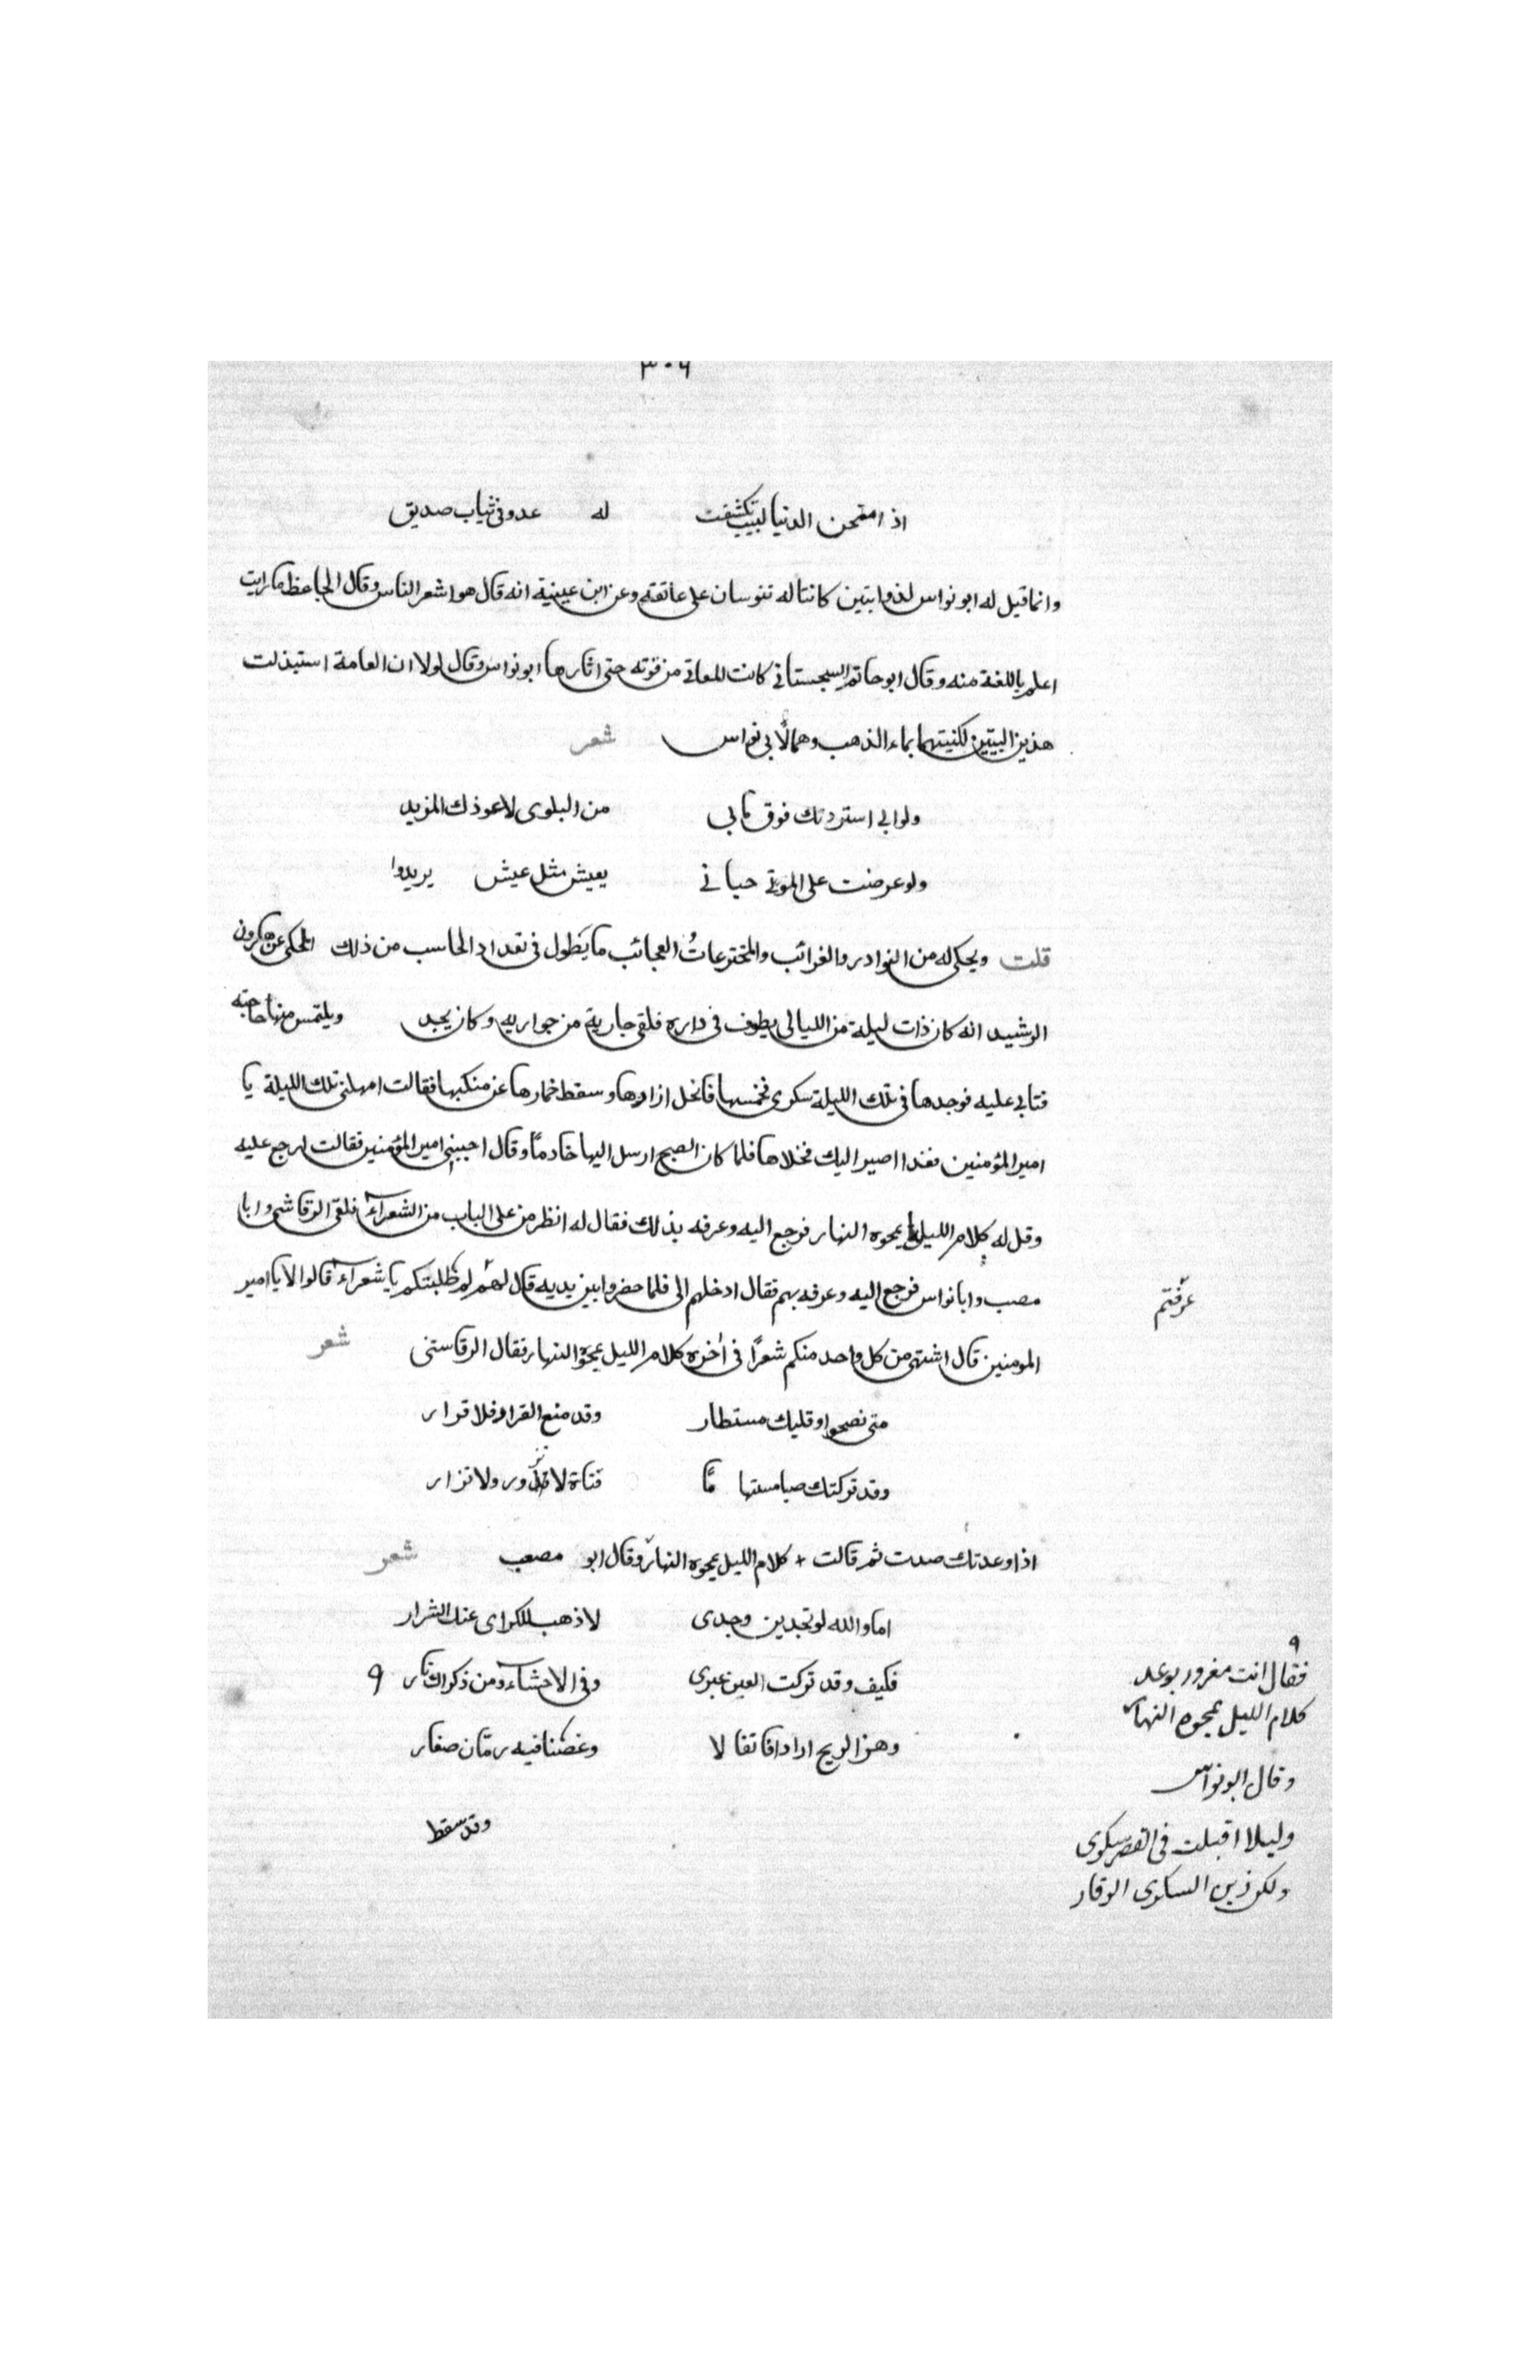 ٣٠٦
اذ امتحن الدنيا لبيب تكشفت له عدو فى ثياب صديق
وانما قيل له ابو نواس لذوابتين كانتا له تنوسان على عاتقه وعن ابن عيينية انه قال هو اشعر الناس وقال الجاحظ ما رايت
اعلم باللغة منه وقال ابو حاتم السجستاني كانت المعاني من فوته حتى اثارها ابو نواس وقال لولا ان العامة استبذلت
هذين البيتين لكتبتهما بماء الذهب وهما لابي نواس شعر
ولو اني استزدتك فوق ما بي من البلوى لاعوذك المزيد
ولو عرضت على الموتى حياتي بعيش مثل عيش يريدوا
قلت ويحكى له من النوادر والغرائب والمخترعاتُ العجائب ما يَطول فى تعداد الحاسب من ذلك الحكى عن هرون
الرشيد انه كان ذات ليلة من الليالى يطوف فى داره فلقى جارية من جواريه وكان يجد ويلتمس منها حاجته
فتابى عليه فوجدها فى تلك الليلة سكرى فخمسها فانحل ازارها وسقط خمارها عن منكبها فقالت امهلنى تلك الليلة يا
امير المؤمنين فغدا اصير اليك فخلاها فلما كان الصبح ارسل اليها خادماً وقال اجيبنى امير المؤمنين فقالت ارجع عليه
وقل له كلام الليل يمحوه النهار فرجع اليه وعرفه بذلك فقال له انظر من على الباب من الشعراء فلقى الرقاشى وابا
مصب وابا نواس فرجع اليه وعرفه بهم فقال ادخلهم الى فلما حضروا بين يديه قال لهم لم طلبتكم يا شعراء قالوا لا يا امير
عرفتم
المومنين قال اشتهى من كل واحد منكم شعراً فى اخره كلام الليل يمحوه النهار فقال الرقاستى شعر
متى نصحوا وقلبك مستطار وقد منع القرار فلا قرار
وقد تركتك صبا مستهاماً فتاة لا تزور ولا تزار
اذا وعدتك صدت ثم قالت + كلام الليل يمحوه النهار وقال ابو مصعب شعر
اما والله لو تجدين وجدى لاذهب للكراى عنك الشرار
فكيف وقد تركت العين عبرى وفى الاحشاء ومن ذكراك نار ٩
وهز الريح اردافا ثقالا وغصنا فيه رمّان صغار
وقد سقط
٩
فقال انت مغرور بوعد
كلام الليل يمحوه النهار
وقال ابو نواس
وليلا اقبلت فى القصر سكرى
ولكن زين السكرى الوقار